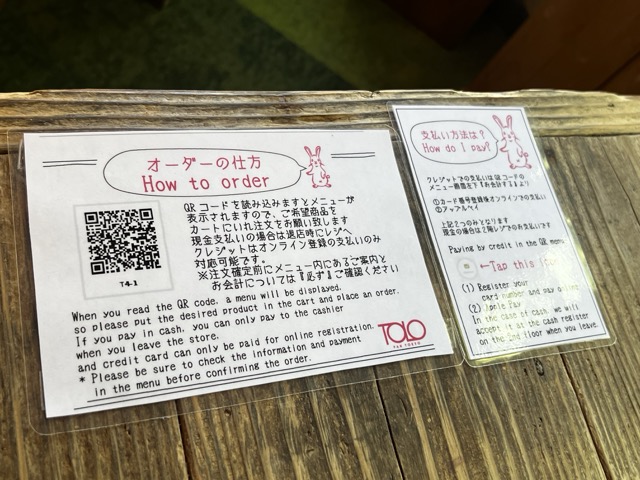 オーダーの仕方
How to order
QRコードを読み込みますとメニューが
表示されますので、ご希望商品を
カートにいれ注文をお願い致します
現金支払いの場合は退店時にレジへ
クレジットはオンライン登録の支払いのみ
対応可能です。
※注文確定前にメニュー内にあるご案内と
お会計については『必ず』ご確認ください
T4-1
When you read the QR code, a menu will be displayed.
so please put the desired product in the cart and place an order.
If you pay in cash, you can only pay to the cashier
when you leave the store.
and credit card can only be paid for online registration.
* Please be sure to check the information and payment
in the menu before confirming the order.
TOLO
PAN TOKYO
支払い方法は?
How do I pay?
クレジットでの支払いはQRコードの
メニュー画面左下『お会計する』より
①カード番号登録後オンラインでの支払い
②アップルペイ
上記2つのみとなります
現金の場合は2階レジでのお支払いです
Paying by credit in the QR menu
←Tap this
(1) Register your
card number and pay online
(2) Apple Pay
In the case of cash, we will
accept it at the cash register
on the 2nd floor when you leave.